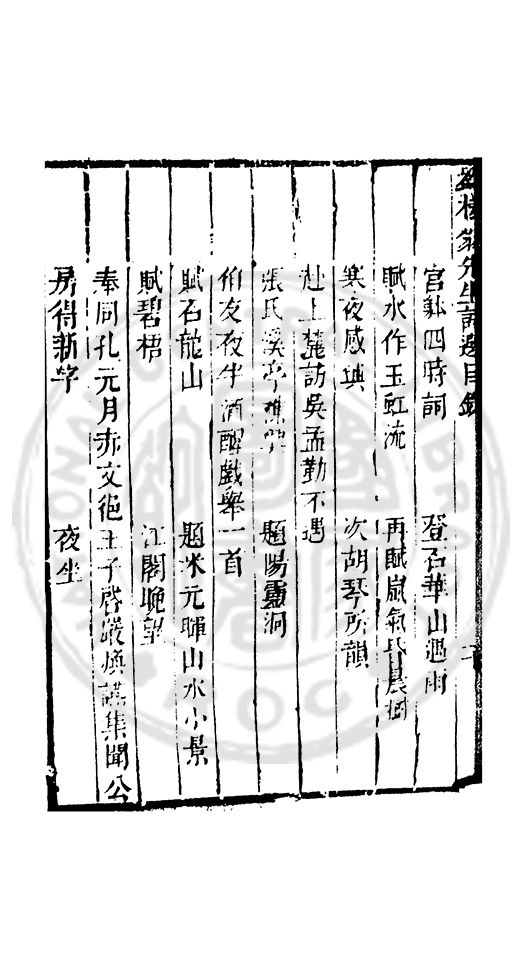 先生詩選目錄
宮詞四時詞 登石華山遇雨
賦水作玉虹流 再賦嵐氣昏晨樹
寒夜感興 次胡琴所韻
赴上麓訪吳孟勤不遇
張氏溪亭雜興 題陽靈洞
伯友夜半酒醒戲舉一首
賦石龍山 題米元暉山水小景
賦碧梧 江閣晚望
奉同孔元月赤文德王子啓嚴煥議集聞公
房得新字 夜坐